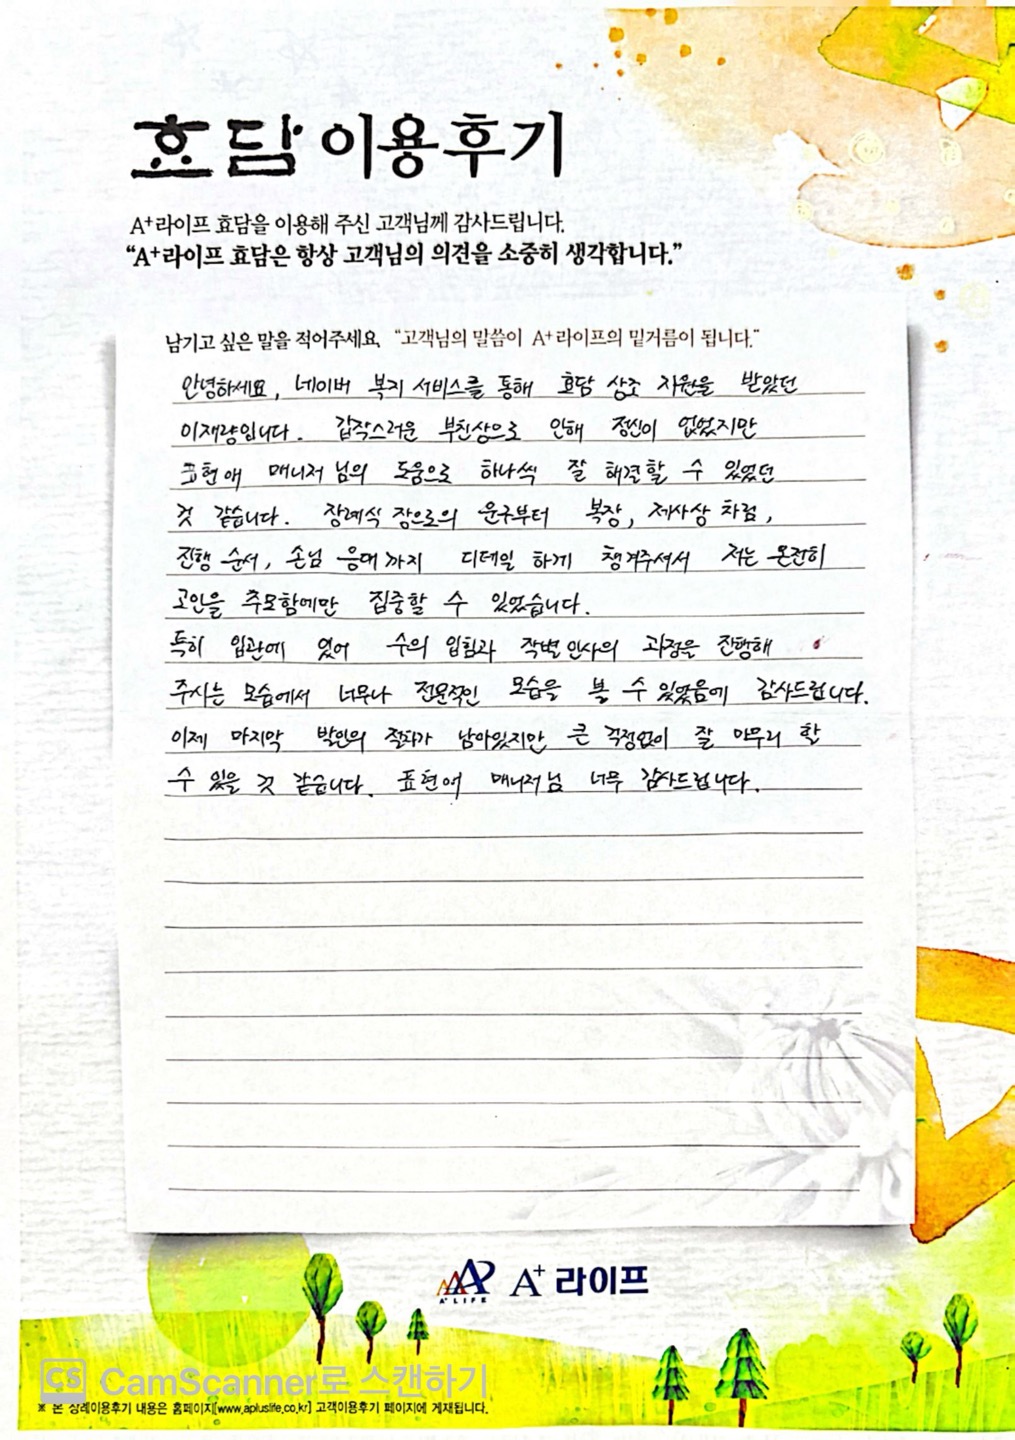 효담 이용후기
A+라이프 효담을 이용해 주신 고객님께 감사드립니다.
“A+라이프 효담은 항상 고객님의 의견을 소중히 생각합니다.”
남기고 싶은 말을 적어주세요, “고객님의 말씀이 A+라이프의 밑거름이 됩니다.”
안녕하세요, 네이버 복지 서비스를 통해 효담 상조 지원을 받았던
이재량입니다. 갑작스러운 부친상으로 인해 정신이 없었지만
표현애 매니저님의 도움으로 하나씩 잘 해결할 수 있었던
것 같습니다. 장례식장으로의 운구부터 복장, 제사상 차림,
진행 순서, 손님 응대까지 디테일 하게 챙겨주셔서 저는 온전히
고인을 추모함에만 집중할 수 있었습니다.
특히 입관에 있어 수의 입힘과 작별인사의 과정을 진행해
주시는 모습에서 너무나 전문적인 모습을 볼 수 있었음에 감사드립니다.
이제 마지막 발인의 절차가 남아있지만 큰 걱정없이 잘 마무리 할
수 있을 것 같습니다. 표현애 매니저님 너무 감사드립니다.
A+ LIFE A+ 라이프
CS CamScanner로 스캔하기
※ 본 장례이용후기 내용은 홈페이지[www.apluslife.co.kr] 고객이용후기 페이지에 게재됩니다.